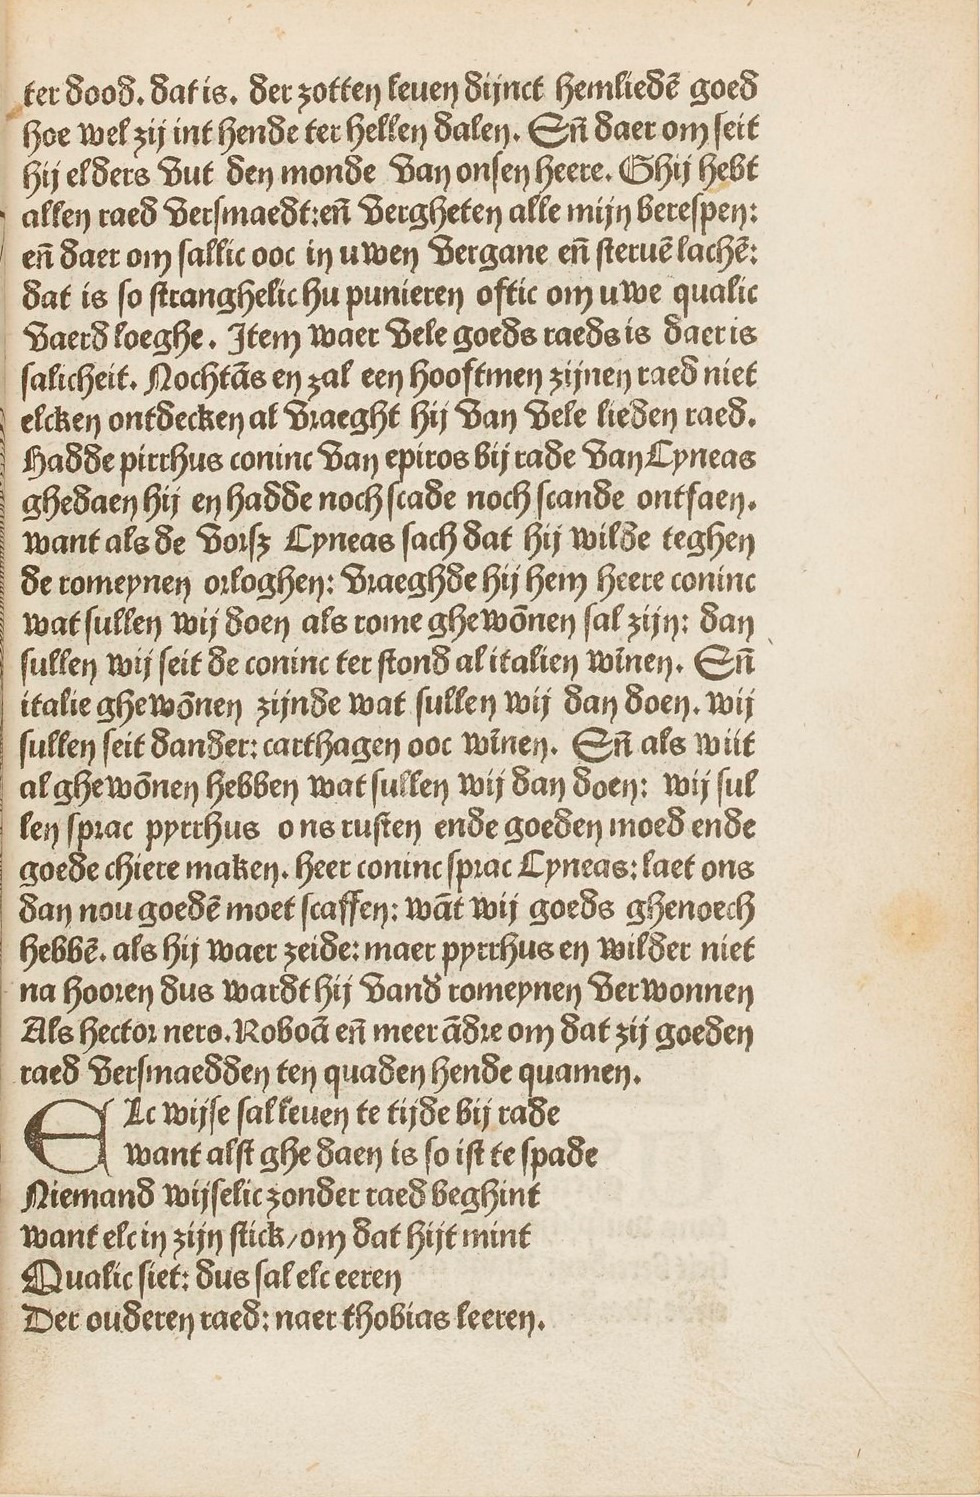 ter dood. dat is. der zotten leuen dijnct hemliedē goed
hoe wel zij int hende ter hellen dalen. Eñ daer om seit
hij elders vut den monde van onsen heere. Ghij hebt
allen raed versmaedt: eñ vergheten alle mijn berespen:
eñ daer om sallic ooc in uwen vergane eñ steruē lachē:
dat is so stranghelic hu punieren oftic om uwe qualic
vaerd loeghe. Item waer vele goeds raeds is daer is
salicheit. Nochtās en zal een hooftmen zijnen raed niet
elcken ontdecken al vraeght hij van vele lieden raed.
Hadde pirrhus coninc van epiros bij rade van Cyneas
ghedaen hij en hadde noch scade noch scande ontfaen.
want als de vorsz Cyneas sach dat hij wilde teghen
de romeynen orloghen: vraeghde hij hem heere coninc
wat sullen wij doen als rome ghewōnen sal zijn: dan
sullen wij seit de coninc ter stond al italien wīnen. Eñ
italie ghewōnen zijnde wat sullen wij dan doen. wij
sullen seit dander: carthagen ooc wīnen. Eñ als wiit
al ghewōnen hebben wat sullen wij dan doen: wij sul
len sprac pyrrhus ons rusten ende goeden moed ende
goede chiere maken. heer coninc sprac Cyneas: laet ons
dan nou goedē moet scaffen: wāt wij goeds ghenoech
hebbē. als hij waer zeide: maer pyrrhus en wilder niet
na hooren dus wardt hij vand romeynen verwonnen
Als hector nero. Roboā eñ meer ādre om dat zij goeden
raed versmaedden ten quaden hende quamen.
ELc wijse sal leuen te tijde bij rade
want alst ghedaen is so ist te spade
Niemand wijselic zonder raed beghint
want elc in zijn stick/om dat hijt mint
Qualic siet: dus sal elc eeren
Der ouderen raed: naer thobias leeren.